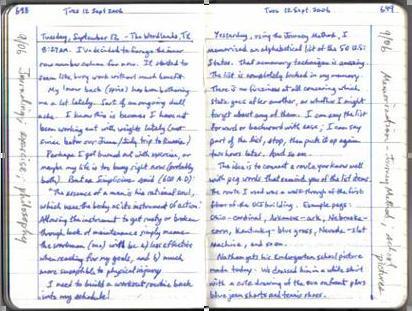 698
Tues 12 Sept 2006
Tuesday, September 12, - The Woodlands, TX
8:27am. I've decided to forego the inner
row number column for now. It started to
seem like busy work without much benefit.
My lower back (spine) has been bothering
me a lot lately. Sort of an ongoing dull
ache. I know this is because I have not
been working out with weights lately (not
since before our June/July trip to Russia)
Perhaps I got burned out with exercise, or
maybe my life is too busy right now (probably
both). But as Simplicius said (608 A D)
"The essence of a man is his rational soul,
which uses the body as its instrument of action."
Allowing the instrument to get rusty or broken
through lack of maintenance simply means
the workman (me) will be a) less effective
when reaching for my goals, and b) much
more susceptible to physical injury
I need to build a workout routine back
into my schedule!
9/06 exercise, philosophy
Tues 12 Sept 2006
699
Yesterday, using the Journey Method, I
memorized an alphabetical list of the 50 U.S.
States. That memory technique is amazing.
The list is completely locked in my memory.
There is no fuzziness at all concerning which
state goes after another, or whether I might
forget about any of them. I can say the list
forward or backward with ease; I can say
part of the list, stop, then pick it up again
two hours later. And so on.
The idea is to connect a route you know well
with peg words that remind you of the list items.
The route I used was a walk-through of the first
floor of the building. Example pegs:
Ohio - cardinal, Arkansas - ark, Nebraska -
corn, Kentucky - blue grass, Nevada - slot
machine, and so on.
Nathan gets his Kindergarten school picture
made today. We dressed him in a white shirt
with a cute drawing of the on front plus
blue jean shorts and tennis shoes.
9/06 Memorization - Journey Method; school pictures